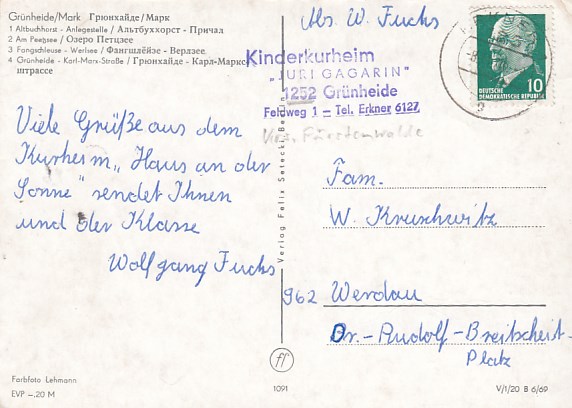 Grünheide/Mark Грюнхайде/Марк
1 Altbuchhorst - Anlegestelle / Альтбуххорст - Причал
2 Am Peetzsee / Озеро Петцзее
3 Fangschleuse - Werlsee / Фангшлёйзе - Верлзее
4 Grünheide - Karl-Marx-Straße / Грюнхайде - Карл-Маркс-
штрассе
Viele Grüße aus dem
Kurheim „Haus an der
Sonne" sendet Ihnen
und der Klasse
Wolfgang Fuchs
Farbfoto Lehmann
EVP -.20 M
Verlag Felix Setecki, Berlin
ff
1091
Abs. W. Fuchs
Kinderkurheim
„JURI GAGARIN"
1252 Grünheide
Feldweg 1 - Tel. Erkner 6127
Krs. Fürstenwalde
DEUTSCHE
DEMOKRATISCHE REPUBLIK
10
Fam.
W. Kruschwitz
962 Werdau
Dr.-Rudolf-Breitscheit-
Platz
V/1/20 B 6/69